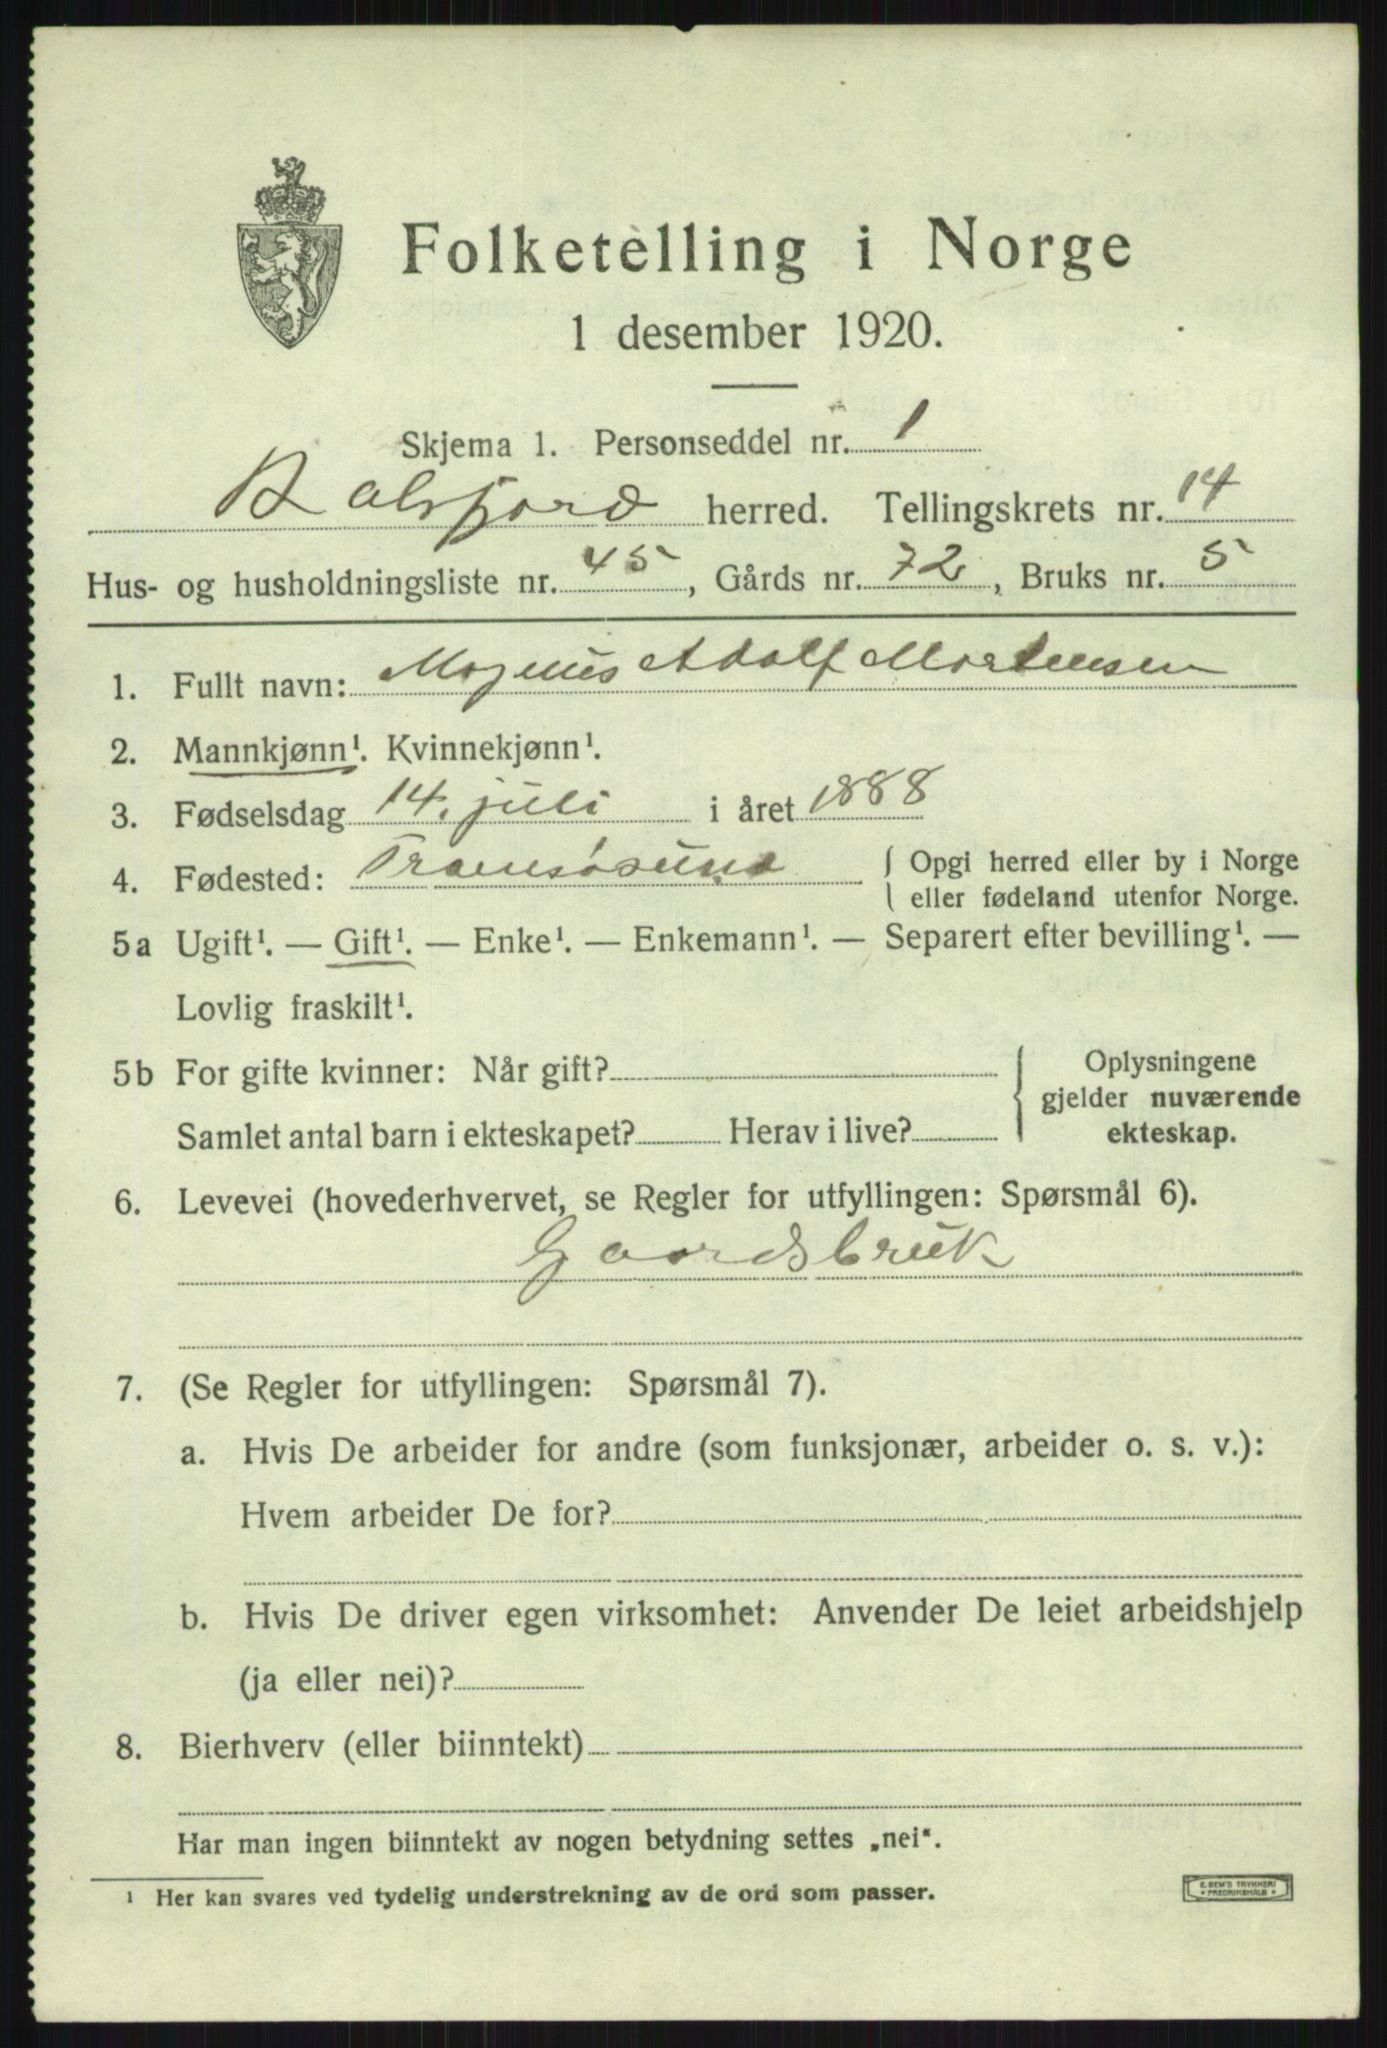 Folketelling i Norge
1 desember 1920.
Skjema 1. Personseddel nr. 1
Balsfjord herred. Tellingskrets nr. 14
Hus- og husholdningsliste nr. 45, Gårds nr. 72, Bruks nr. 5
1. Fullt navn: Magnus Adolf Mortensen
2. Mannkjønn¹. Kvinnekjønn¹.
3. Fødselsdag 14. juli i året 1888
4. Fødested: Tromsøsund { Opgi herred eller by i Norge
eller fødeland utenfor Norge.
5a Ugift¹. — Gift¹. — Enke¹. — Enkemann¹. — Separert efter bevilling¹. —
Lovlig fraskilt¹.
5b For gifte kvinner: Når gift? { Oplysningene
gjelder nuværende
Samlet antal barn i ekteskapet? Herav i live? ekteskap.
6. Levevei (hovederhvervet, se Regler for utfyllingen: Spørsmål 6).
Gaardsbruk
7. (Se Regler for utfyllingen: Spørsmål 7).
a. Hvis De arbeider for andre (som funksjonær, arbeider o. s. v.):
Hvem arbeider De for?
b. Hvis De driver egen virksomhet: Anvender De leiet arbeidshjelp
(ja eller nei)?
8. Bierhverv (eller biinntekt)
Har man ingen biinntekt av nogen betydning settes „nei“.
¹ Her kan svares ved tydelig understrekning av de ord som passer.
E. SEM'S TRYKKERI
FREDRIKSHALD